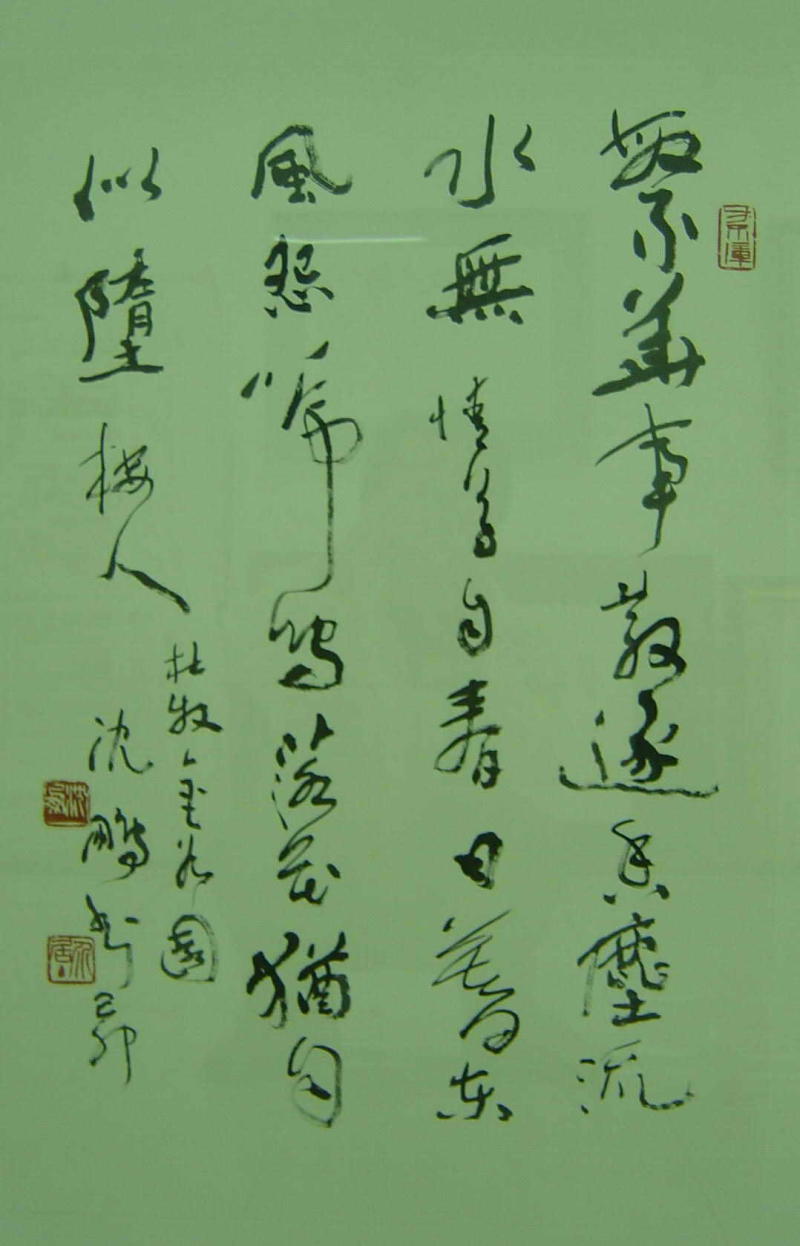 繁華事散逐香塵流
水無情草自春日暮東
風怨啼鳥落花猶自
似墮樓人
杜牧金谷園
沈鵬書己卯
沈鵬